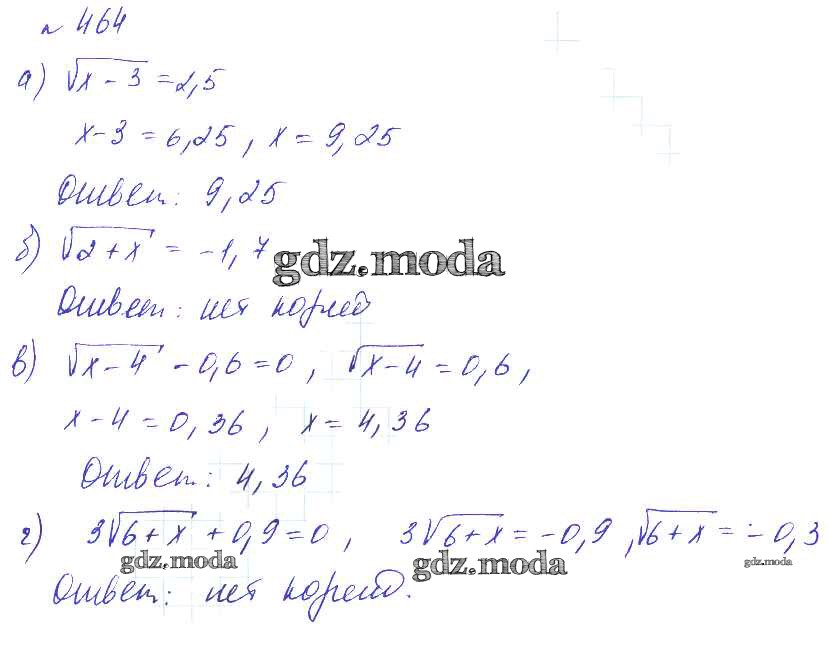 № 464
а) √x - 3 = 2,5
x - 3 = 6,25, x = 9,25
Ответ: 9,25
б) √2 + x = -1,7
gdz.moda
Ответ: нет корней
в) √x - 4 - 0,6 = 0, √x - 4 = 0,6,
x - 4 = 0,36, x = 4,36
Ответ: 4,36
г) 3√6 + x + 0,9 = 0, 3√6 + x = -0,9, √6 + x = -0,3
gdz.moda gdz.moda gdz.moda
Ответ: нет корней.